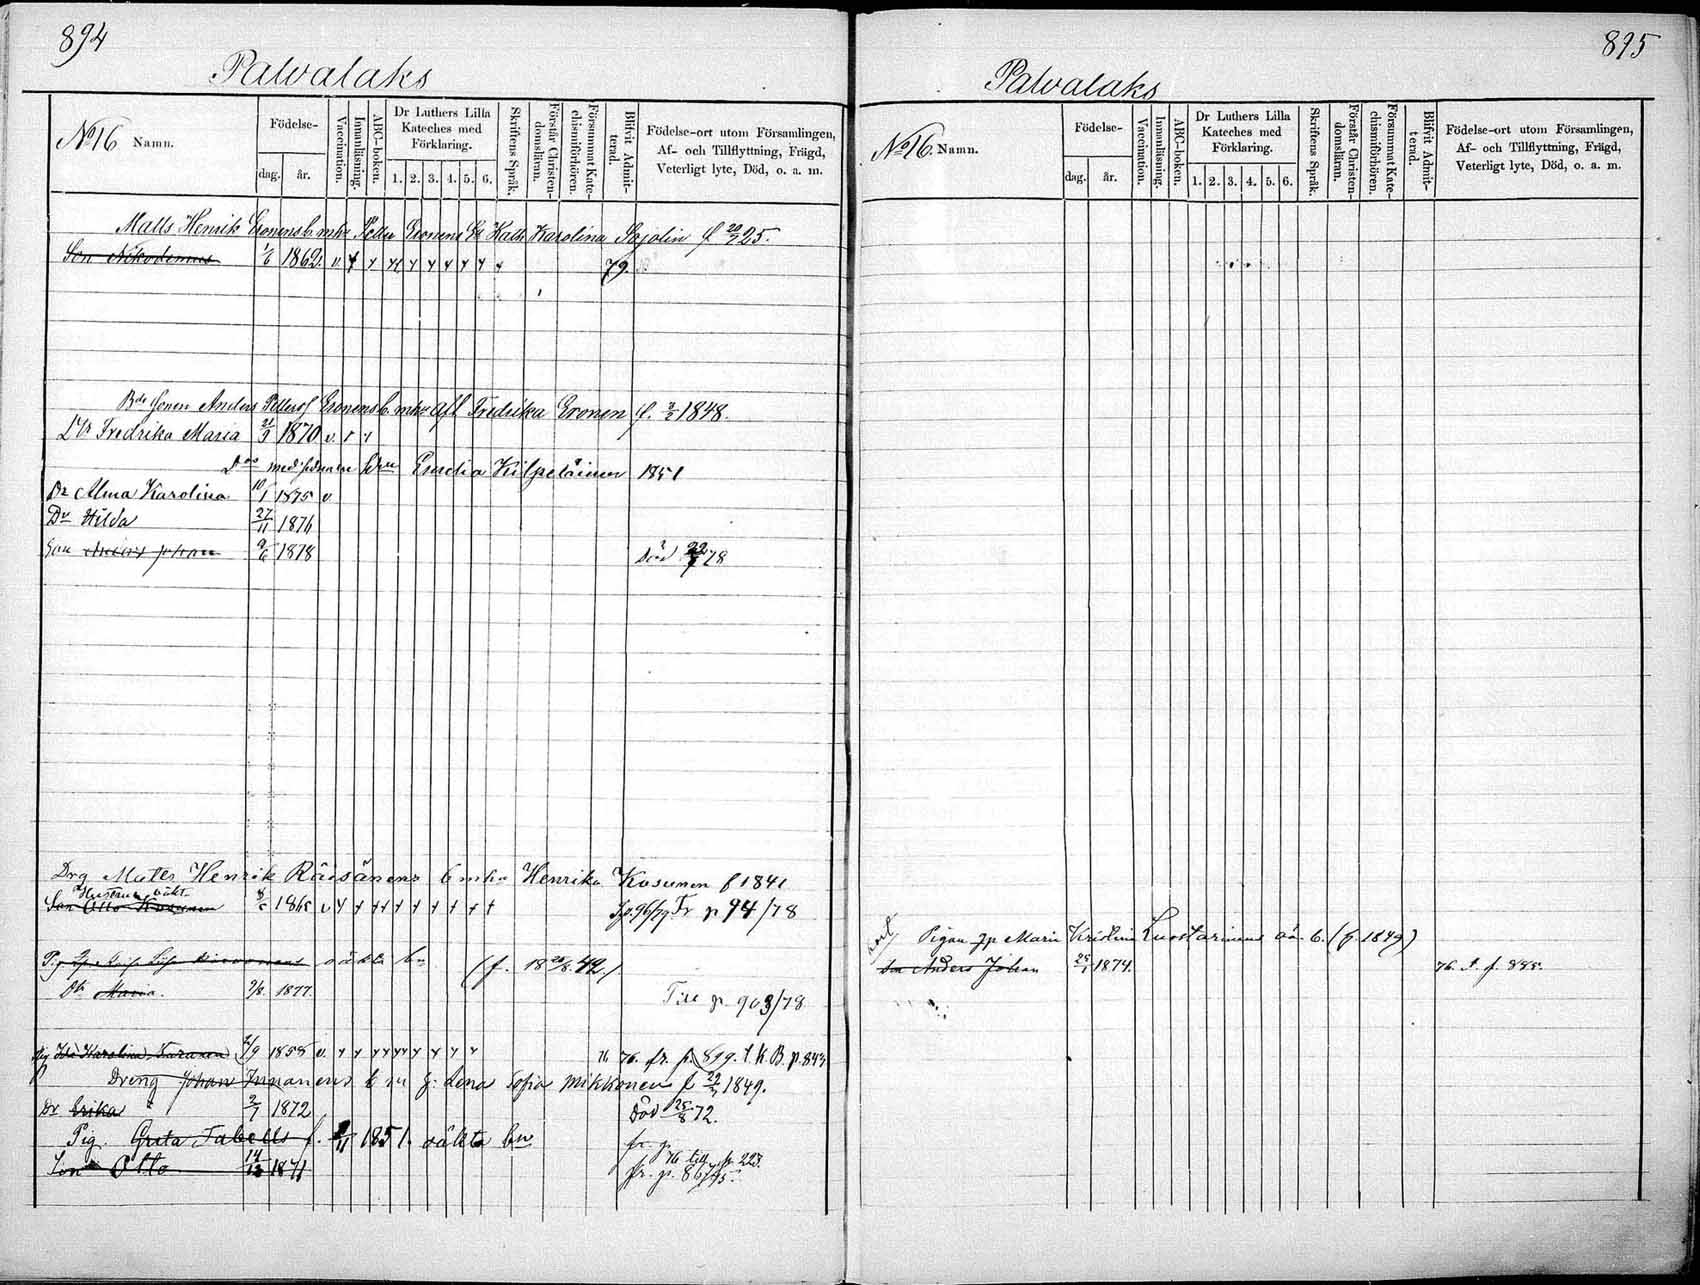 894
Palvalaks
No 16 Namn.
Födelse-
dag.
år.
Vaccination.
Innanläsning.
ABC-boken.
Dr Luthers Lilla
Kateches med
Förklaring.
1. 2. 3. 4. 5. 6.
Skriftens Språk.
Förstår Christen-
domsläran.
Försummat Kate-
chismiförhören.
Blifvit Admit-
terad.
Födelse-ort utom Församlingen,
Af- och Tillflyttning, Frägd,
Veterligt lyte, Död, o. a. m.
Matts Henrik Eronens b. mke Karolina f 20/2 25.
Son Nikodemus 1/6 1862. v 79.
Anders Petters Eronens b. mke Fredrika Eronen f. 1848.
Fredrika Maria 21/9 1870 v.
Kilpeläinen 1851
Dr Alma Karolina 10/1 1875 v
Dr Hilda 27/11 1876
Son Johan 9/6 1878 Död 22/7 78
Drg Matts Henrik Räisänens b mke Henrika Kosunen f 1841
Hustrun oäkt.
Son Otto Kosunen v Fr p 94/78
Pig oäkta bn (f. 18 42.)
Dr Maria. 1877. Till p 903/78
Pig Ida Karolina 1858 v. 76. fr. p. 899. l. K. B. p. 843
Dreng Johan Innanens b m h. Lena Sofia Mikkonen f 29/3 1849.
Dr Erika 2/7 1872 Död 25/8 72.
Pig. Greta Tabells f. 1851. oäkta bn fr. p.
76 till p. 223.
Son Otto 14/12 1871 fr. p. 867/75.
895
Palvalaks
No 16. Namn.
Födelse-
dag.
år.
Vaccination.
Innanläsning.
ABC-boken.
Dr Luthers Lilla
Kateches med
Förklaring.
1. 2. 3. 4. 5. 6.
Skriftens Språk.
Förstår Christen-
domsläran.
Försummat Kate-
chismiförhören.
Blifvit Admit-
terad.
Födelse-ort utom Församlingen,
Af- och Tillflyttning, Frägd,
Veterligt lyte, Död, o. a. m.
Pigan Maria Kristina Luostarinens oä. b. (f. 1849)
Son Anders Johan 25/1 1874. 76.